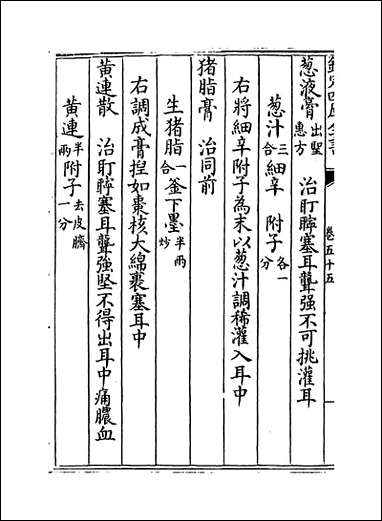 欽定四庫全書
卷五十五
葱液膏出聖惠方 治耵聹塞耳聾强不可挑灌耳
葱汁三合 細辛 附子各一分
右將細辛附子為末以葱汁調稀灌入耳中
猪脂膏 治同前
生猪脂一合 釜下墨半兩炒
右調成膏捏如棗核大綿裹塞耳中
黄連散 治耵聹塞耳聾強堅不得出耳中痛膿血
黄連半兩 附子去皮臍一分